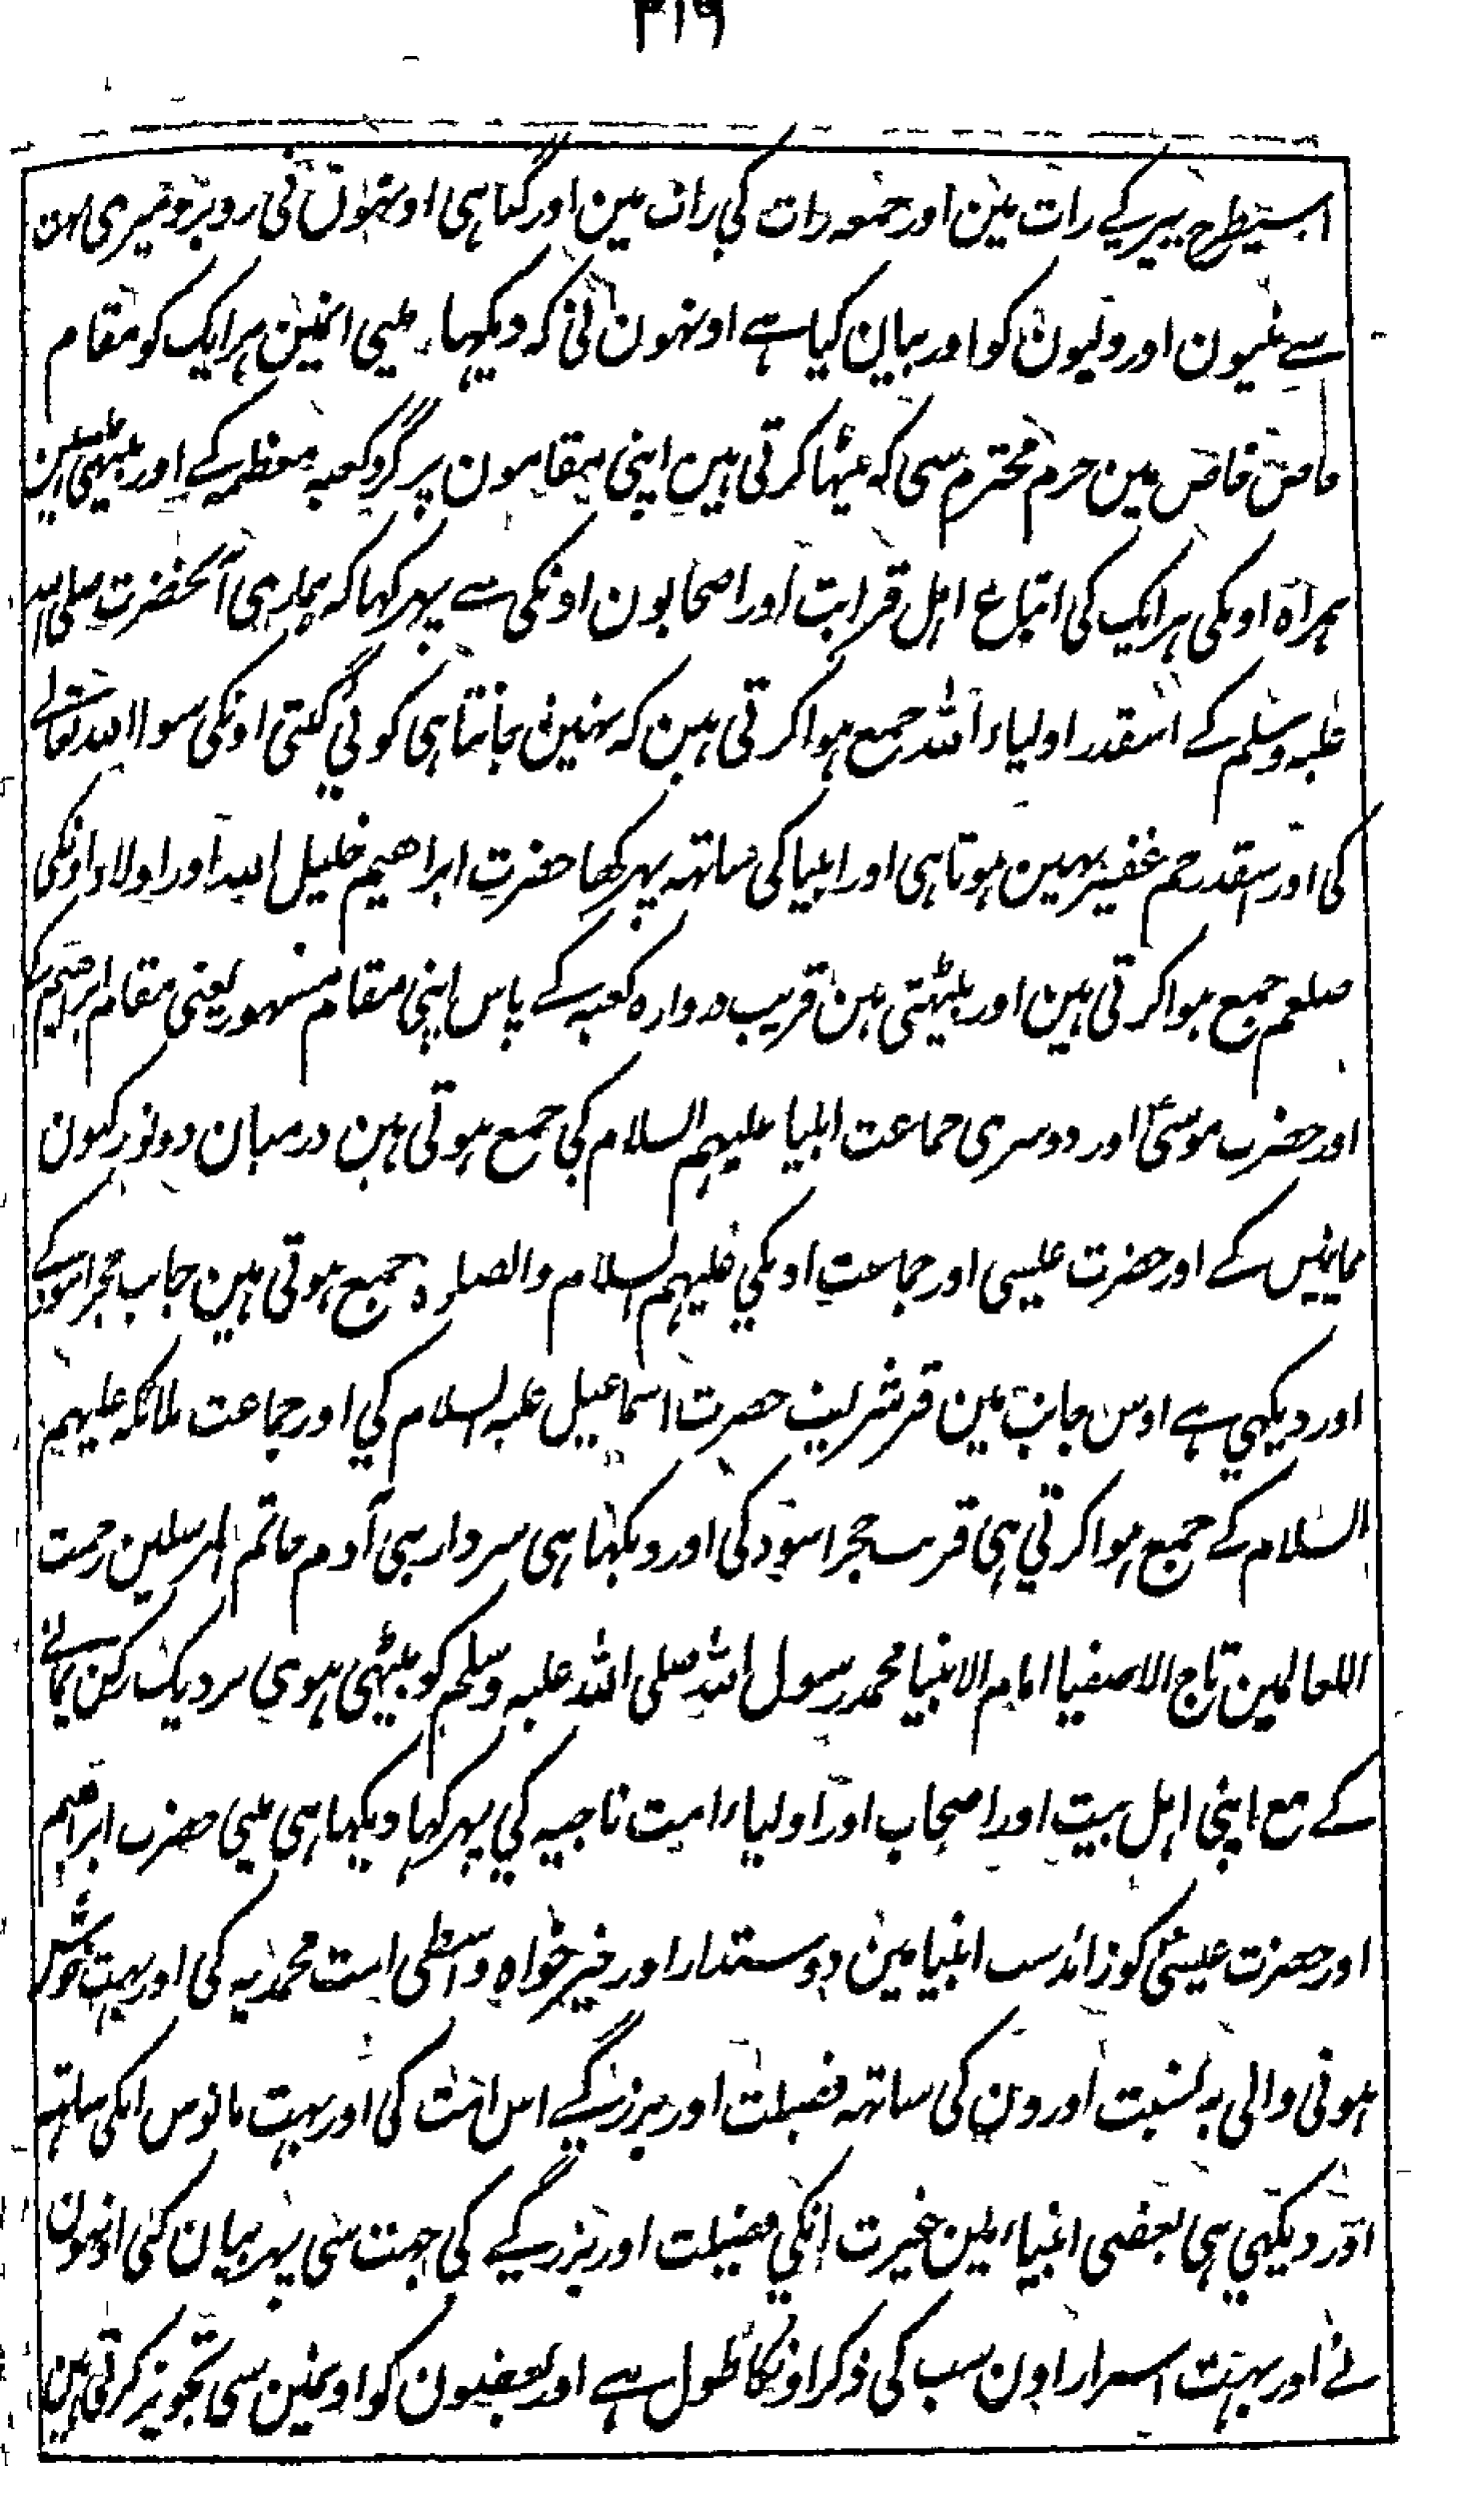 ۳۱۹
اسیطرح پیر کے رات مین اور جمعہ رات کی رات مین اور گنا ہی اونہون نی روبرو میری
سے نبیون اور ولیون کو اور بیان کیا ہے اونہون نی کہ دیکہا مینی انمین ہر ایک کو مقام
خاص خاص مین حرم محترم سی کہ بیٹہا کرتی ہین اپنی مقامون پر گرد کعبہ معظمہ کے اور بیٹہتی ہین
ہمراہ اونکی ہر ایک کی اتباع اہل قرابت اور اصحابون اونکی سے پہر کہا کہ ہماری آنحضرت صلی اللہ
علیہ وسلم کے اسقدر اولیاء اللہ جمع ہوا کرتی ہین کہ نہین جانتا ہی کوئی گنتی اونکی سوا اللہ تعالے
کی اور اسقدر جم غفیر نہین ہوتا ہی اور انبیا کی ساتہہ پہر کہا حضرت ابراھیم خلیل اللہ اور اولاد اونکی
صلعم جمع ہوا کرتی ہین اور بیٹہتی ہین قریب دروازہ کعبہ کے پاس اپنی مقام مشہور یعنی مقام ابراھیم کے
اور حضرت موسیٰ اور دوسری جماعت انبیا علیہم السلام کی جمع ہوتی ہین درمیان دونو رکنون
یمانیین کے اور حضرت عیسی اور جماعت اونکی علیہم السلام والصلوۃ جمع ہوتی ہین جانب حجر اسود کے
اور دیکہی ہے اوس جانب مین قبر شریف حضرت اسماعیل علیہ السلام کی اور جماعت ملائکہ علیہم
السلام کے جمع ہوا کرتی ہی قریب حجر اسود کی اور دیکہا ہی سردار بنی آدم خاتم المرسلین رحمت
اللعالمین تاج الاصفیا امام الانبیا محمد رسول اللہ صلی اللہ علیہ وسلم کو بیٹہی ہوی نزدیک رکن یمانے
کے مع اپنی اہل بیت اور اصحاب اور اولیاء امت ناجیہ کی پہر کہا دیکہا ہی مینی حضرت ابراہیم
اور حضرت عیسیٰ کو زائد سب انبیا مین دوستدار اور خیر خواہ واسطی امت محمدیہ کی اور بہت خوش
ہونی والی بہ نسبت اورون کی ساتہہ فضیلت اور بزرگے اس امت کی اور بہت مانوس انکی ساتہہ
اور دیکہی ہی بعضی انبیاء مین غیرت انکی فضیلت اور بزرگے کی جہت سی پہر بیان کئی اونہون
نے اور بہت اسرار اون سب کی ذکر اونکا طول ہے اور بعضون کو اونمین سی تجویز کرتی ہین